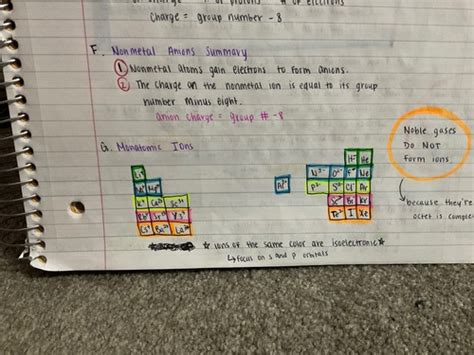 # of electrons
Charge = group number - 8
F. Nonmetal Anions Summary
① Nonmetal atoms gain electrons to form anions.
② The charge on the nonmetal ion is equal to its group
number minus eight.
anion charge = group # -8
G. Monatomic Ions
Noble gases
DO NOT
form ions
because they're
octet is complete
H⁻ He
N³⁻ O²⁻ F⁻ Ne
Al³⁺ P³⁻ S²⁻ Cl⁻ Ar
K⁺ Ca²⁺ Sc³⁺
Kr
Y³⁺
I⁻ Xe
Ba²⁺ La³⁺
* ions of the same color are isoelectronic *
↳ focus on s and p orbitals